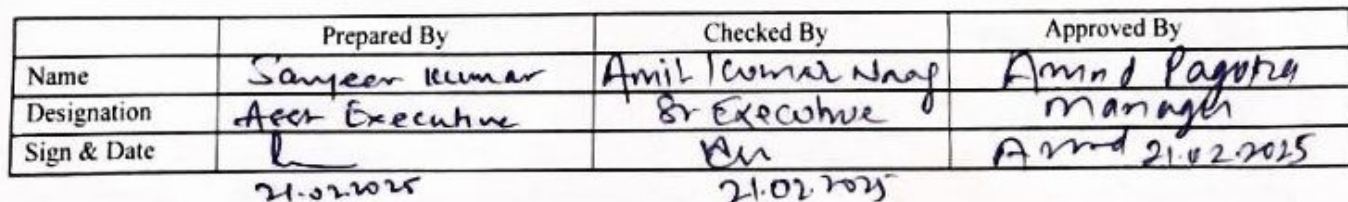 Prepared By Checked By Approved By
Name Sanjeev Kumar Amit Kumar Naag
Designation Executive Sr Executive Manager
Sign & Date 21.02.2025
21.02.2025 21.02.2025